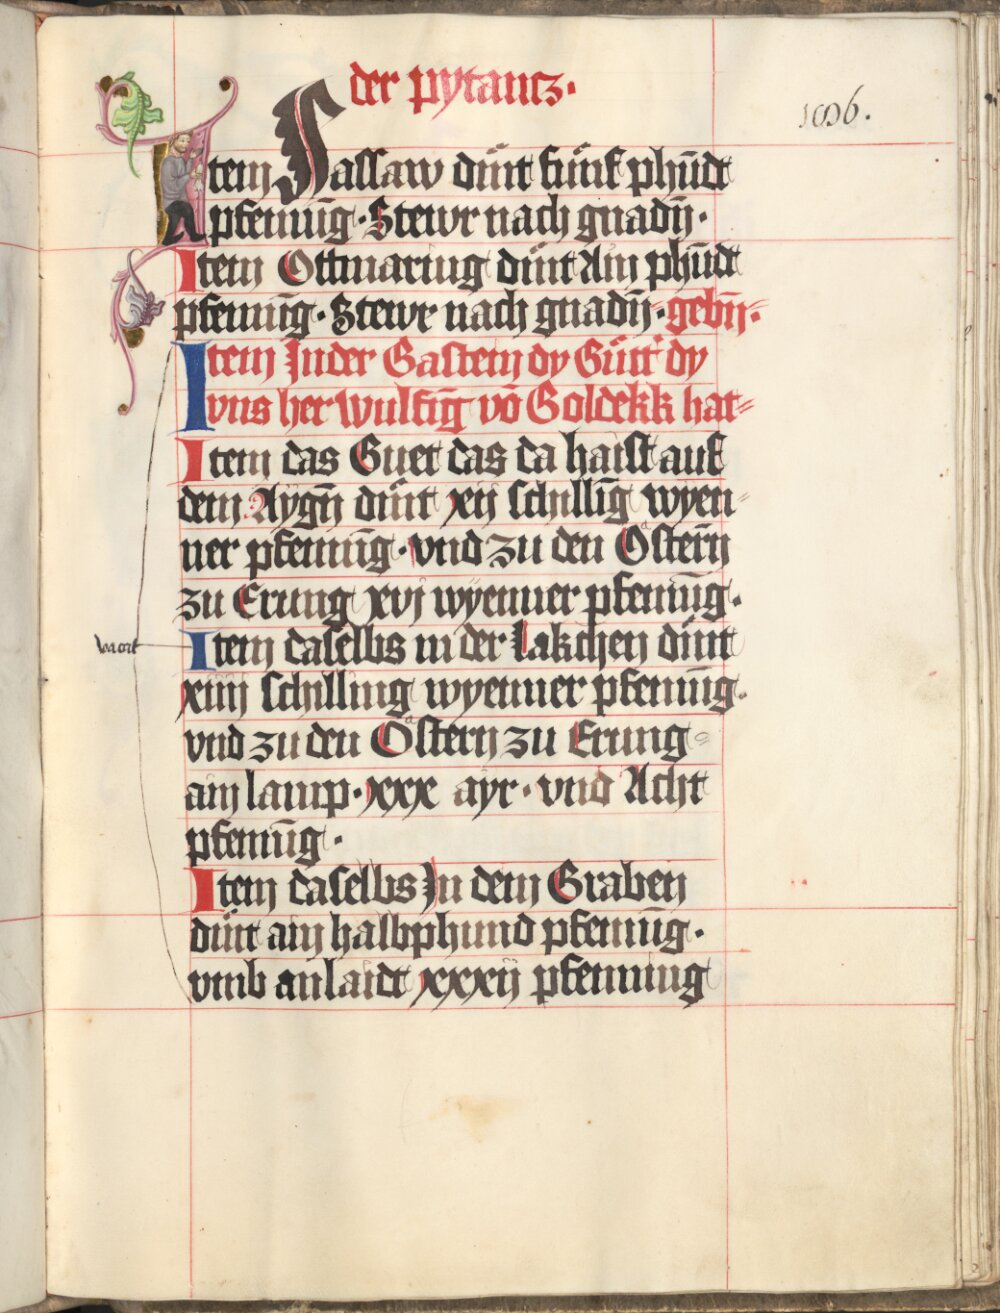 der pytancz·
1696.
Item Sassaw dint fünf phu͞dt
pfennin͞g · Stewr nach gnadn̄ ·
Item Ottmaring dint Ain phu͞dt
pfennin͞g · Stewr nach gnadn̄ · gebn̄ ·
Item Inder Gastein dy Gütt dy
vns her wulfin͞g vo͞ Goldekk hat
Item das Guet das da haist auf
dem Aygn̄ dint xij schillin͞g wyen
ner pfennin͞g · vnd zu den Ostern̄
zu Erung xvj wyenner pfennin͞g ·
Item daselbs in der lakchen dint
xiiij schilling wyenner pfennin͞g ·
vnd zu den Ostern zu Erung
ain lamp · xxx ayr · vnd Acht
pfennin͞g ·
Item daselbs In dem Graben
dint ain halbphund pfennin͞g ·
vmb anlaidt xxxij pfenning